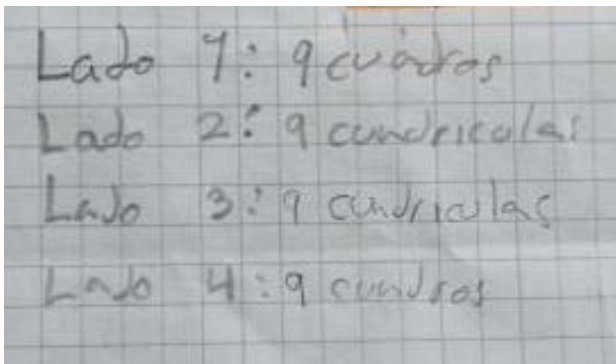 Lado 1: 9 cuadros
Lado 2: 9 cuadriculas
Lado 3: 9 cuadriculas
Lado 4: 9 cuadros